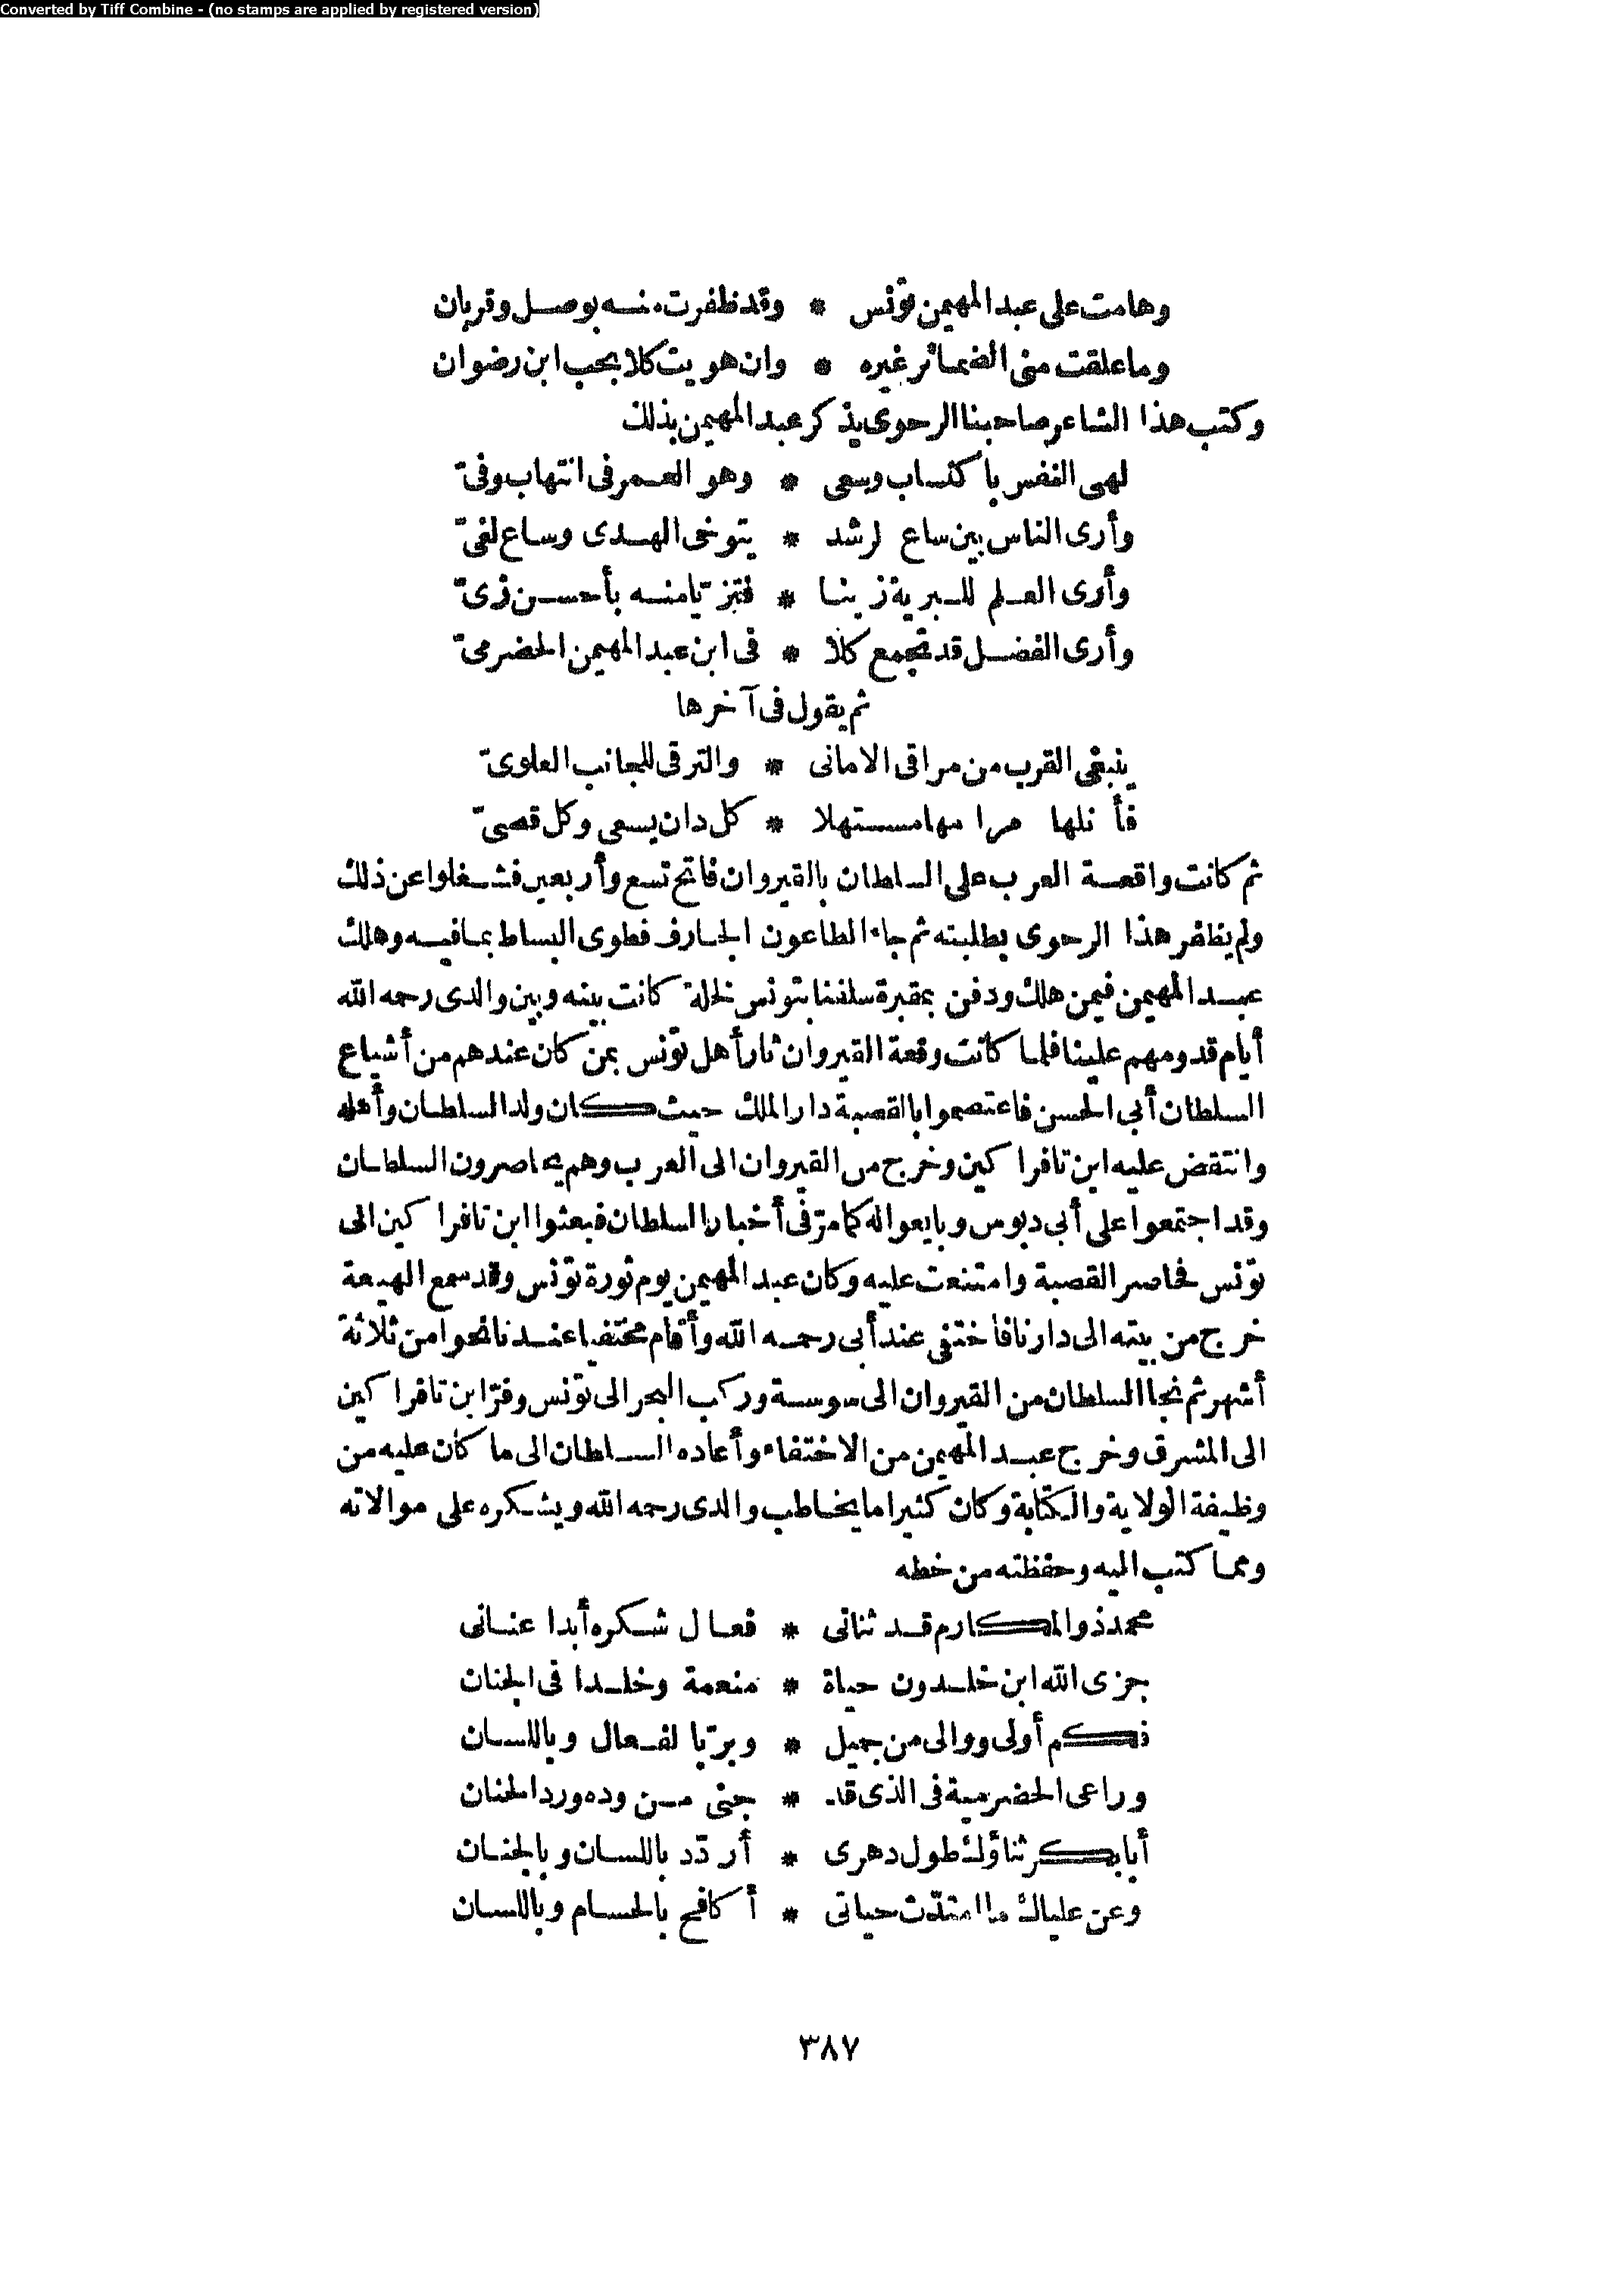 Converted by Tiff Combine - (no stamps are applied by registered version)
وهامت على عبد المهيمن تونس * وقد ظفرت منه بوصل وقربان
وما علقت منى الضمائر غيره * وان هويت كلا بحب ابن رضوان
وكتب هذا الشاعر صاحبنا الرحوى يذكر عبد المهيمن بذلك
لهى النفس با كتساب وسعى * وهو العمر فى انتهاب وفىّ
وأرى الناس بين ساع لرشد * يتوخى الهدى وساع لغىّ
وأرى العلم للبرية زينا * فتزيّا منه بأحسن زىّ
وأرى الفضل قد تجمع كلا * فى ابن عبد المهيمن الحضرمىّ
ثم يقول فى آخرها
ينبغى القرب من مراقى الامانى * والترقى للجانب العلوىّ
فأنلها مرامها مستهلا * كل دان يسعى وكل قصىّ
ثم كانت واقعة العرب على السلطان بالقيروان فاتح تسع وأربعين فشغلوا عن ذلك
ولم يظفر هذا الرحوى بطلبته ثم جاء الطاعون الجارف فطوى البساط بما فيه وهلك
عبد المهيمن فيمن هلك ودفن بمقبرة سلفنا بتونس لخلة كانت بينه وبين والدى رحمه الله
أيام قدومهم علينا فلما كانت وقعة القيروان ثار أهل تونس بمن كان عندهم من أشياع
السلطان أبى الحسن فاعتصموا بالقصبة دار الملك حيث كان ولد السلطان وأهله
وانتقض عليه ابن تافرا كين وخرج من القيروان الى العرب وهم يحاصرون السلطان
وقد اجتمعوا على أبى دبوس وبايعوا له كما مرّ فى أخبار السلطان فبعثوا ابن تافرا كين الى
تونس فحاصر القصبة وامتنعت عليه وكان عبد المهيمن يوم ثورة تونس وقد سمع الهيعة
خرج من بيته الى دارنا فاختفى عند أبى رحمه الله وأقام مختفيا عندنا نحوا من ثلاثة
أشهر ثم نجا السلطان من القيروان الى سوسة وركب البحر الى تونس وفرّ ابن تافرا كين
الى المشرق وخرج عبد المهيمن من الاختفاء وأعاده السلطان الى ما كان عليه من
وظيفة الولاية والكتابة وكان كثيرا ما يخاطب والدى رحمه الله ويشكره على موالاته
ومما كتب اليه وحفظته من خطه
محمد ذو المكارم قد ثنانى * فعال شكره أبدا عنانى
جزى الله ابن خلدون حياة * منعمة وخلدا فى الجنان
فكم أولى ووالى من جميل * وبرّ بالفعال وباللسان
وراعى الحضرمية فى الذى قد * جنى من وده ورد الجنان
أبا بكر ثناؤك طول دهرى * أردّد باللسان وبالجنان
وعن علياك ما امتدّت حياتى * أكافح بالحسام وباللسان
٣٨٧